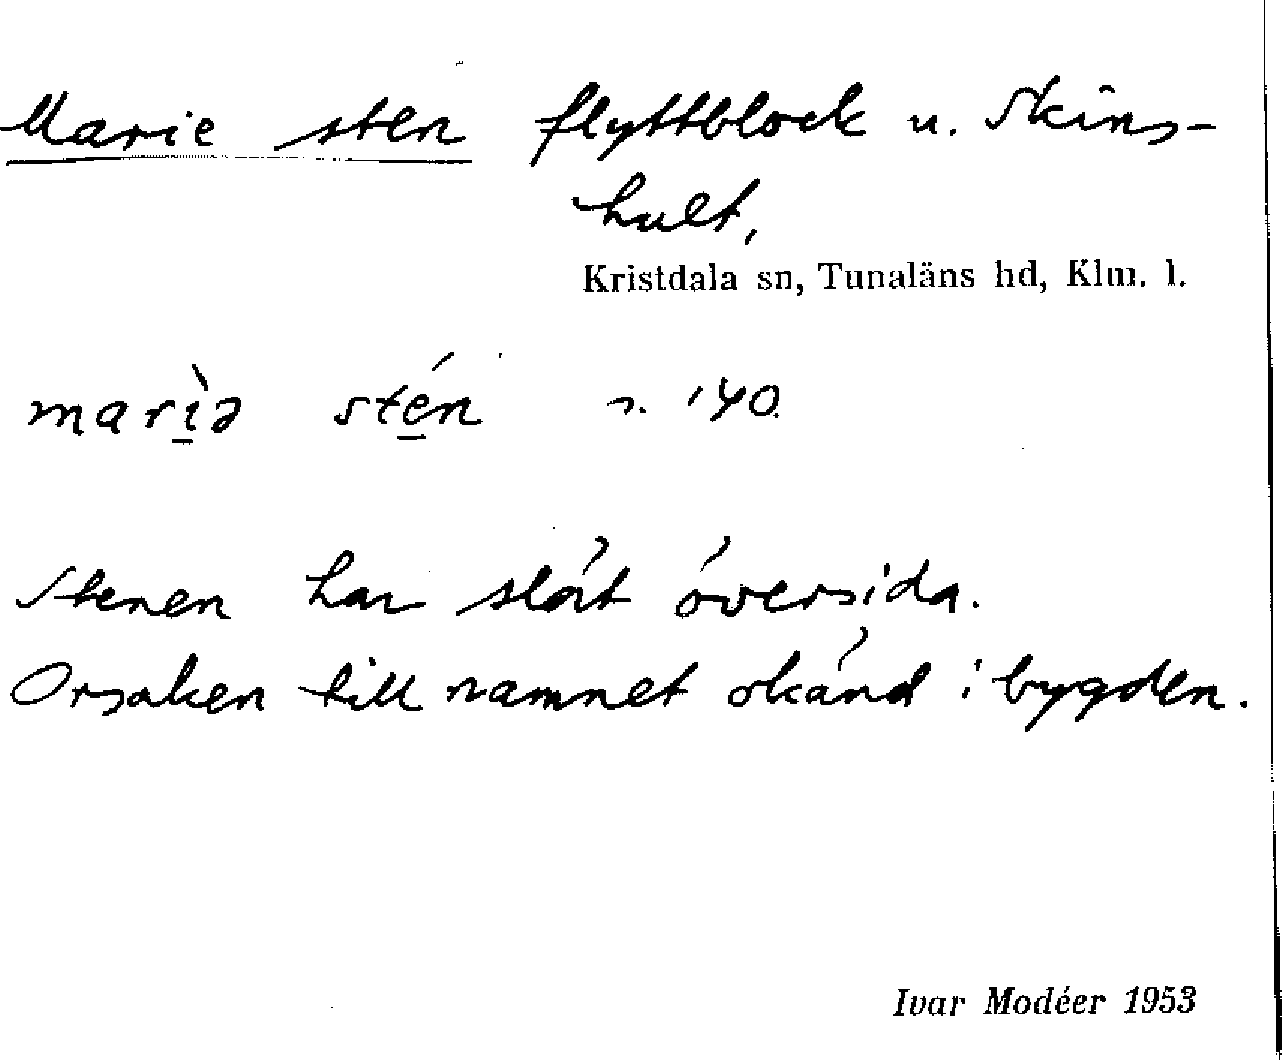 Marie sten flyttblock u. Skins-
hult,
Kristdala sn, Tunaläns hd, Klm. l.
marìə stén n. 140.
Stenen har slät översida.
Orsaken till namnet okänd i bygden.
Ivar Modéer 1953